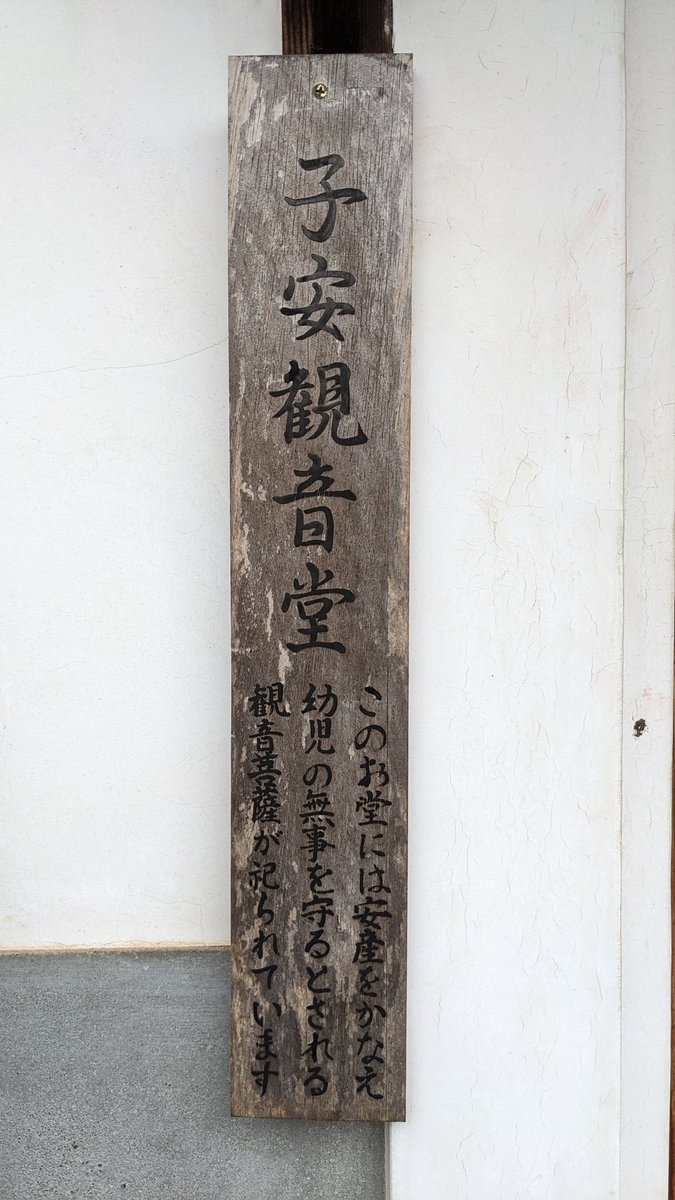 子安観音堂
このお堂には安産をかなえ
幼児の無事を守るとされる
観音菩薩が祀られています